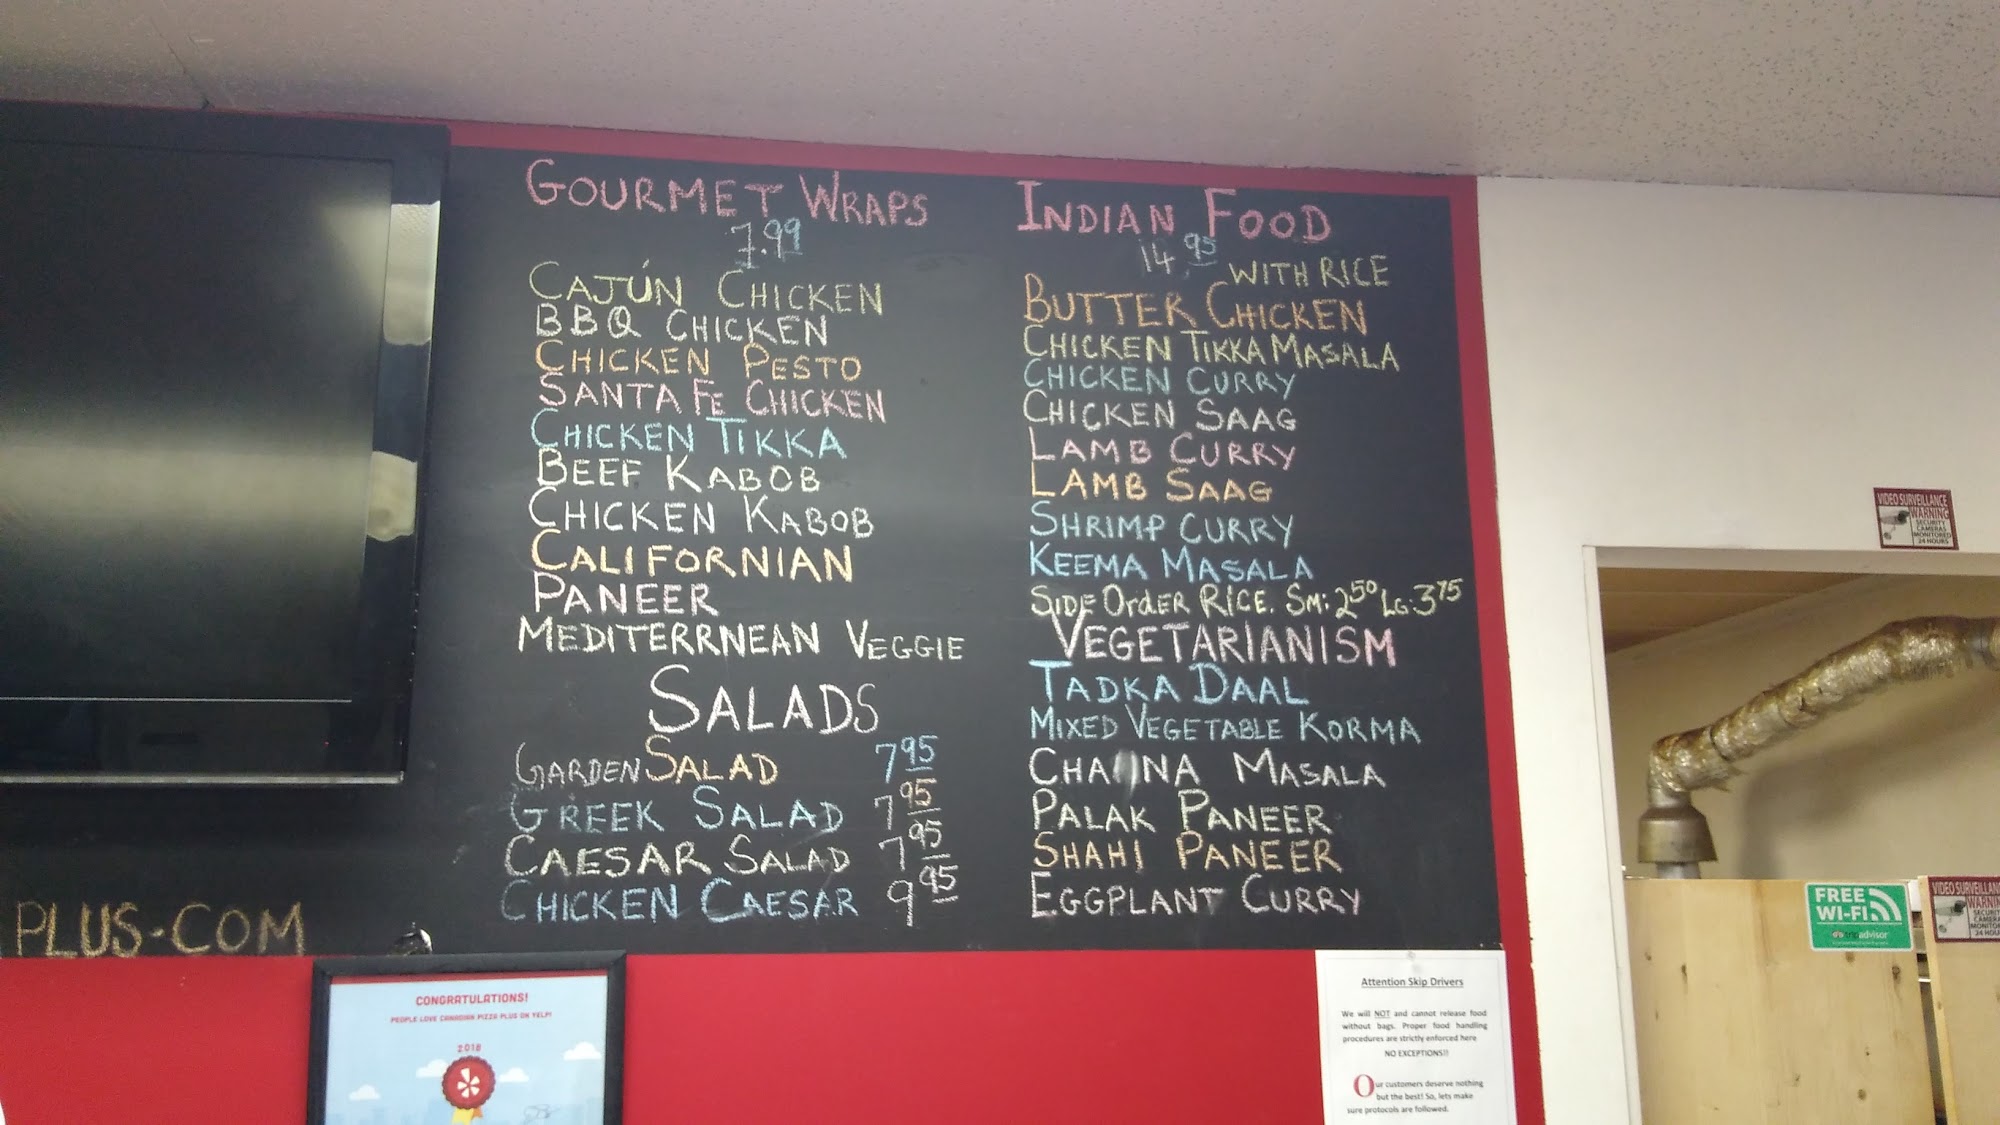 GOURMET WRAPS
7.99
CAJÚN CHICKEN
BBQ CHICKEN
CHICKEN PESTO
SANTA FE CHICKEN
CHICKEN TIKKA
BEEF KABOB
CHICKEN KABOB
CALIFORNIAN
PANEER
MEDITERRNEAN VEGGIE
SALADS
GARDEN SALAD 7.95
GREEK SALAD 7.95
CAESAR SALAD 7.95
CHICKEN CAESAR 9.95
INDIAN FOOD
14.95
WITH RICE
BUTTER CHICKEN
CHICKEN TIKKA MASALA
CHICKEN CURRY
CHICKEN SAAG
LAMB CURRY
LAMB SAAG
SHRIMP CURRY
KEEMA MASALA
SIDE OrdER RICE. SM: 2.50 LG: 3.75
VEGETARIANISM
TADKA DAAL
MIXED VEGETABLE KORMA
CHANNA MASALA
PALAK PANEER
SHAHI PANEER
EGGPLANT CURRY
PLUS.COM
CONGRATULATIONS!
PEOPLE LOVE CANADIAN PIZZA PLUS ON YELP!
2018
Attention Skip Drivers
We will NOT and cannot release food
without bags. Proper food handling
procedures are strictly enforced here
NO EXCEPTIONS!!
Our customers deserve nothing
but the best! So, lets make
sure protocols are followed.
VIDEO SURVEILLANCE
WARNING
SECURITY
CAMERAS
MONITORED
24 HOURS
FREE
WI-FI
tripadvisor
VIDEO SURVEILLAN
WARNIN
SECURIT
CAMERA
MONITO
24 HOU